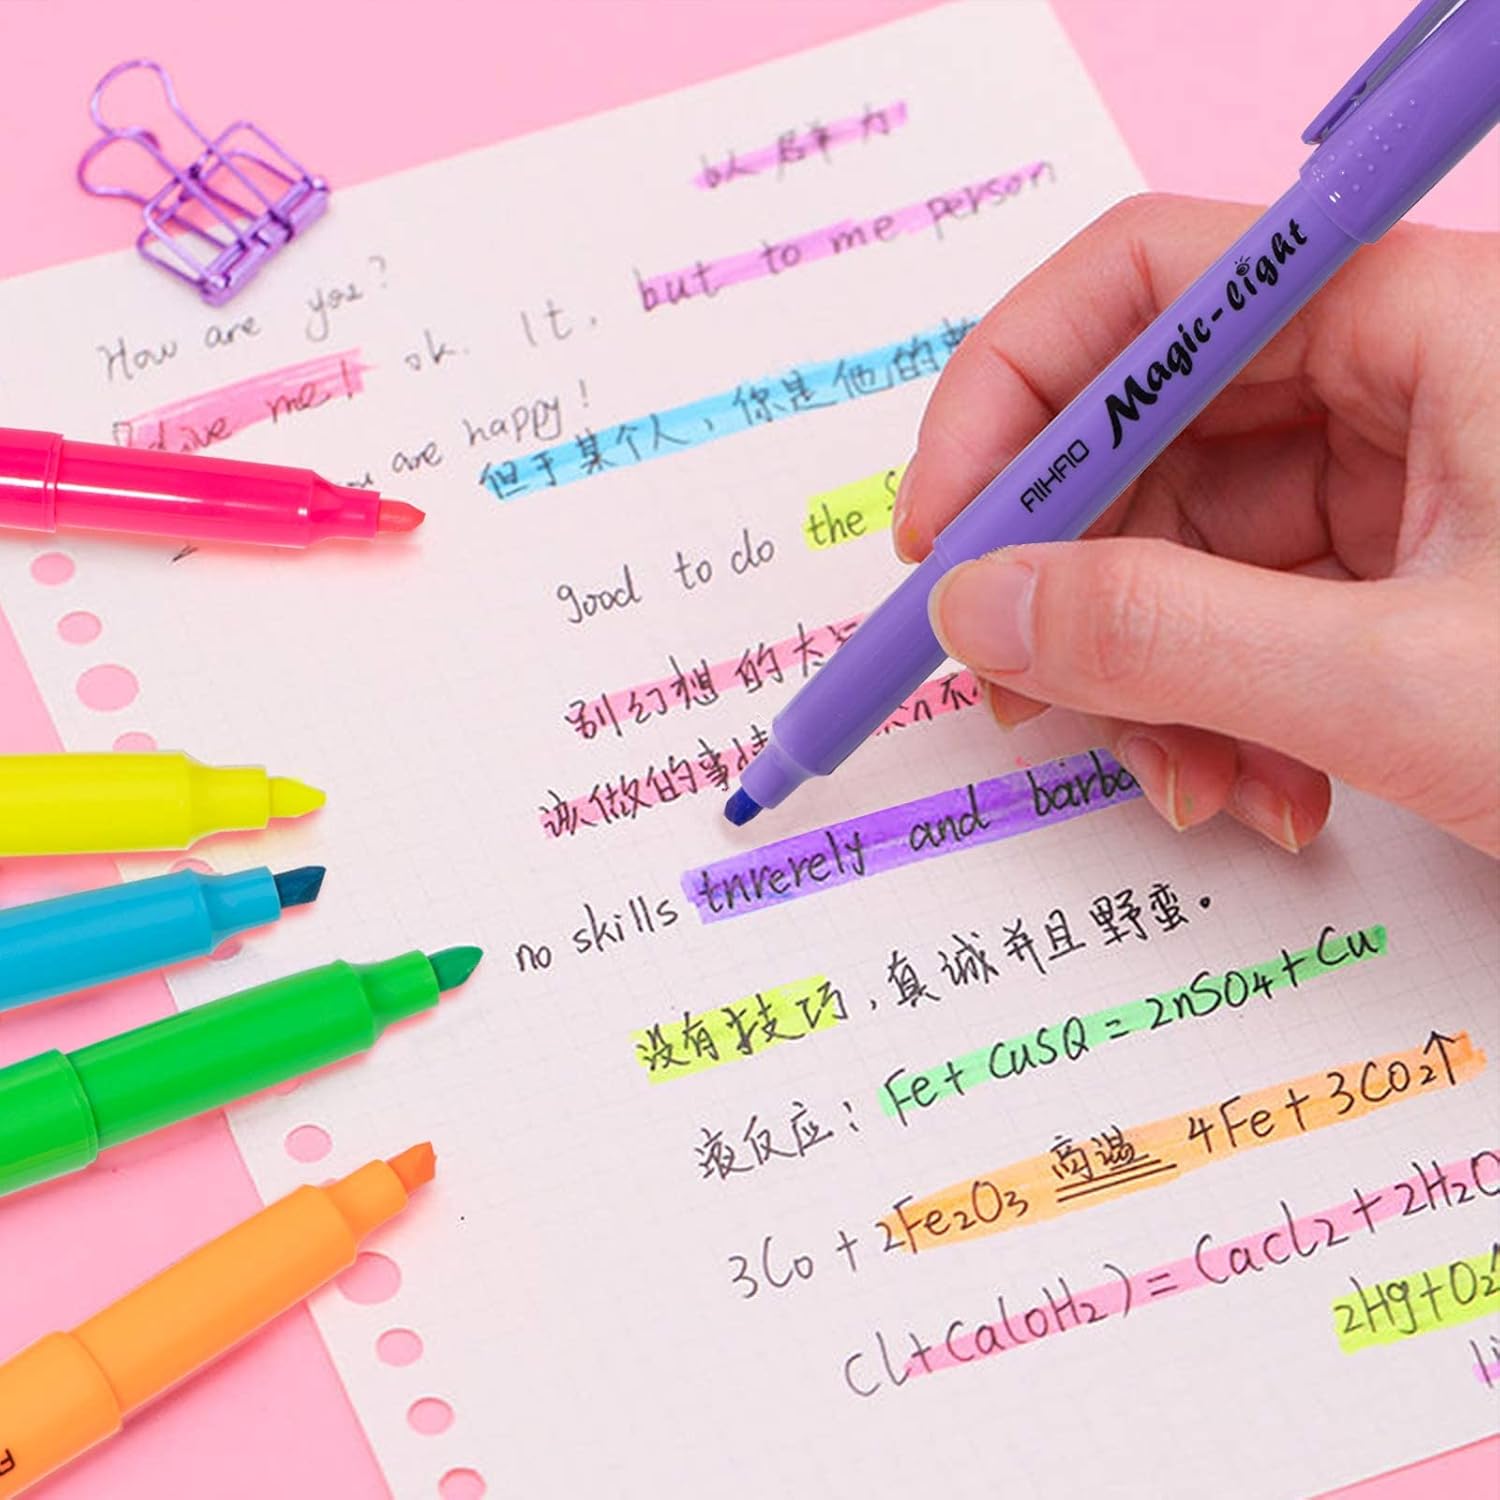 How are you?
ok. It, but to me person
me!
are happy!
但于某个人，你是他的
good to do the
别幻想的大
该做的事情
no skills tnrerely and barba
没有技巧，真诚并且野蛮。
液仅应： Fe+ CuSQ = 2nSO4+ Cu
3Co + 2Fe2O3 高温 4Fe + 3CO2↑
Cl+CaloH2) = Cacl2 + 2H2O
2Hg+O2↑
AIHAO Magic-light